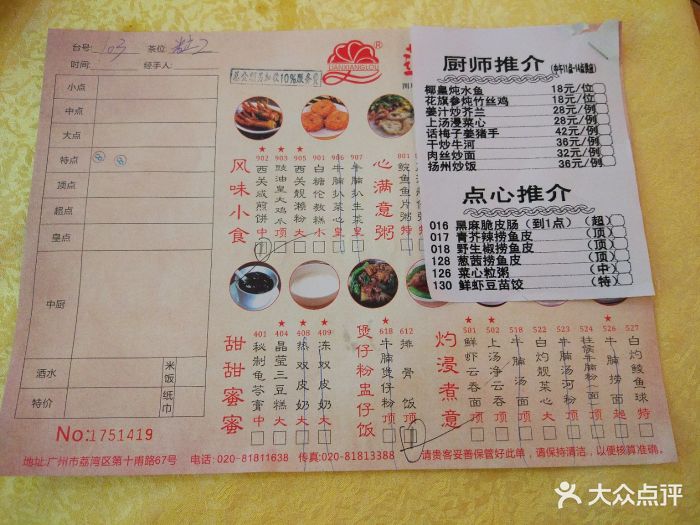 台号: 103 茶位:
时间: 经手人:
小点
中点
大点
特点
顶点
超点
皇点
中厨
酒水
米饭
特价
纸巾
No:1751419
LIANXIANGLOU
®
莲
风味小食
902 西关咸煎饼 中
903 豉油皇大鸡爪 顶
905 西关靓濑粉 大
901 白糖伦教糕 小
906 牛腩扒菜心 皇
907 牛腩扒生菜 皇
心满意粥
801
甜甜蜜蜜
401 秘制龟苓膏 中
404 晶莹三豆糕 大
408 热双皮奶 大
409 冻双皮奶 大
煲仔粉盅仔饭
618 牛腩煲仔粉 顶
612 排骨饭 顶
灼浸煮意
501 鲜虾云吞面 顶
502 上汤净云吞 顶
518 牛腩汤面 顶
522 白灼靓菜心 大
523 牛腩汤河粉 顶
524
526 牛腩捞面 超
527 白灼鲮鱼球 特
厨师推介
椰皇炖水鱼 18元/位
花旗参炖竹丝鸡 18元/位
姜汁炒芥兰 28元/例
上汤浸菜心 28元/例
话梅子姜猪手 42元/例
干炒牛河 36元/例
肉丝炒面 32元/例
扬州炒饭 36元/例
点心推介
016 黑麻脆皮肠（到1点） (超)
017 青芥辣捞鱼皮 (顶)
018 野生椒捞鱼皮 (顶)
128 葱茜捞鱼皮 (顶)
126 菜心粒粥 (中)
130 鲜虾豆苗饺 (特)
地址:广州市荔湾区第十甫路67号 电话: 020-81811638 传真:020-81813388 请贵客妥善保管好此单，请保持清洁，以便核算准确。
大众点评